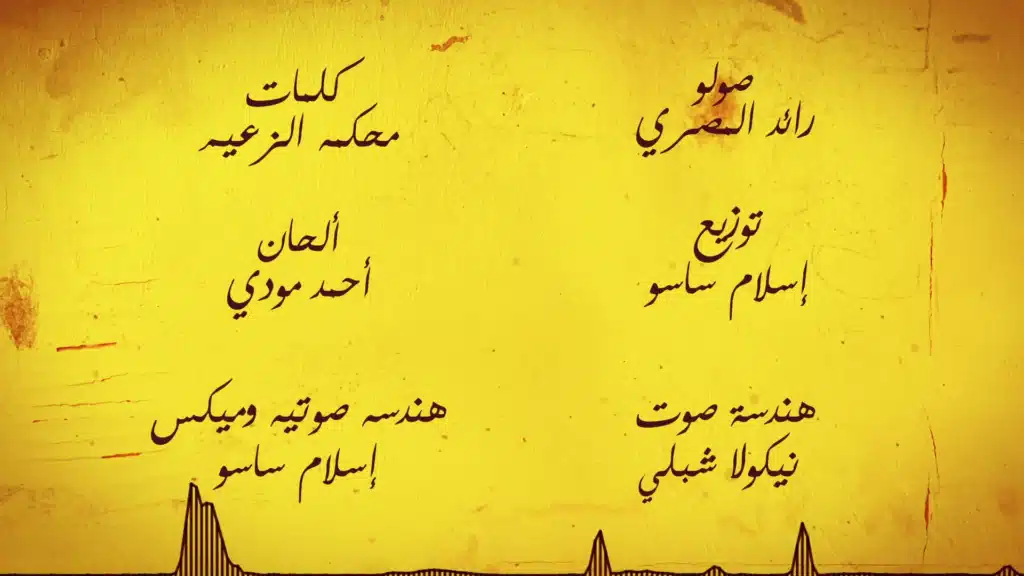 صولو
رائد المصري
كلمات
محكمه الزعيم
توزيع
إسلام ساسو
ألحان
أحمد مودي
هندسة صوت
نيكولا شبلي
هندسه صوتيه وميكس
إسلام ساسو